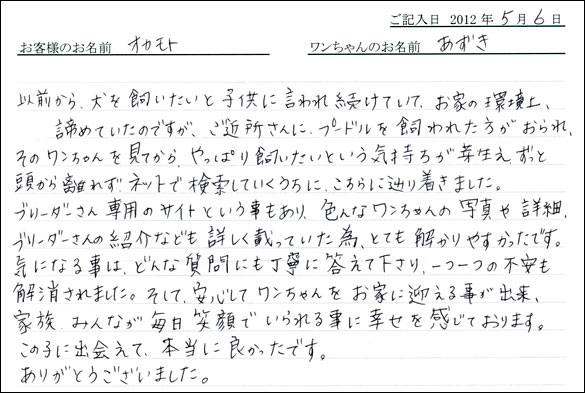 ご記入日 2012 年 5 月 6 日
お客様のお名前 オカモト ワンちゃんのお名前 あずき
以前から、犬を飼いたいと子供に言われ続けていて、お家の環境上、
諦めていたのですが、ご近所さんに、プードルを飼われた方がおられ、
そのワンちゃんを見てから、やっぱり飼いたいという気持ちが芽生え、ずっと
頭から離れず、ネットで検索していくうちに、こちらに辿り着きました。
ブリーダーさん専用のサイトという事もあり、色んなワンちゃんの写真や詳細、
ブリーダーさんの紹介なども詳しく載っていた為、とても解かりやすかったです。
気になる事は、どんな質問にも丁寧に答えて下さり、一つ一つの不安も
解消されました。そして、安心してワンちゃんをお家に迎える事が出来、
家族、みんなが毎日笑顔でいられる事に幸せを感じております。
この子に出会えて、本当に良かったです。
ありがとうございました。